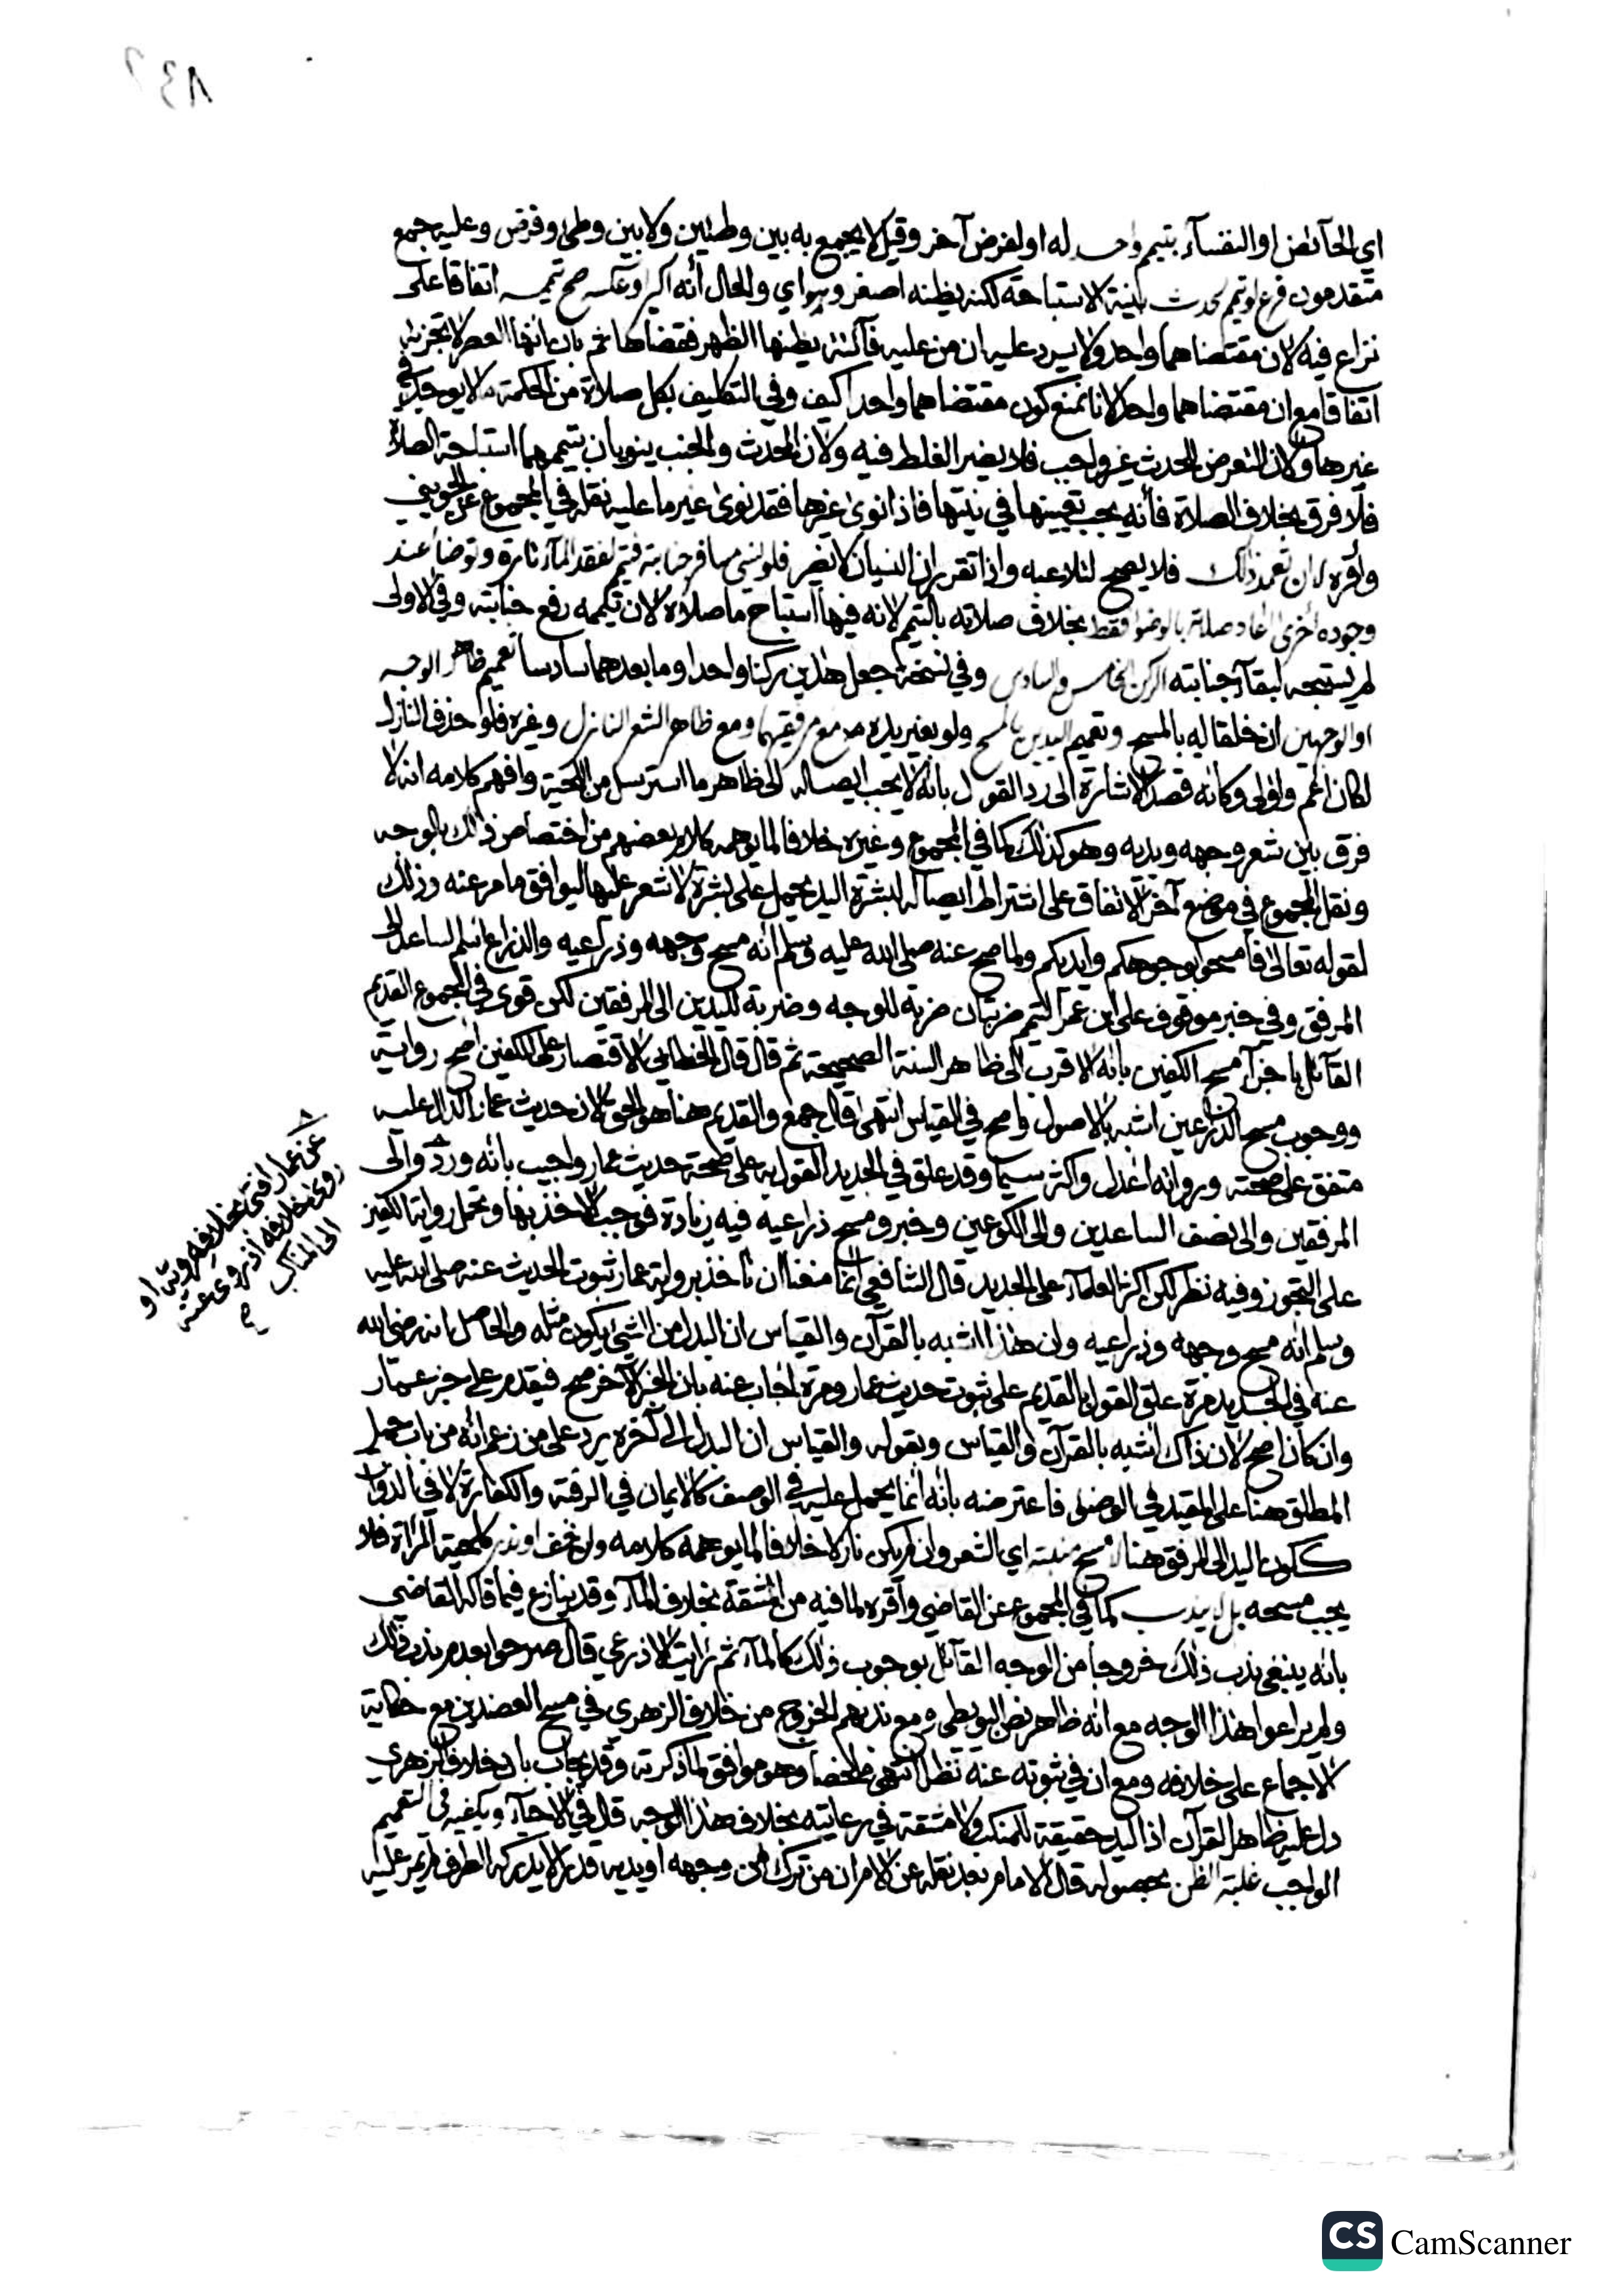 اي الحآئض او النفسآء بتيمم واحد له او لفرض آخر وقيل لا يجمع به بين وطئين ولا بين وطئ وفرض وعليه جمع
متقدمون فرع لو تيمم محدث بنية الاستباحة لكنه يظنه اصغر وهو اي والحال أنه اكبر وعكسه صح تيممه اتفاقا على
نزاع فيه لان مقتضاهما واحد ولا يرد عليه ان من عليه فآئتة يظنها الظهر فقضاها ثم بان انها العصر لا تجزيه
اتفاقا مع ان مقتضاهما واحد لانا نمنع كون مقتضاهما واحدا كيف وفي التكليف بكل صلاة من الحكمة ما لا يوجد في
غيرها ولان التعرض للحدث غير واجب فلا يضر الغلط فيه ولان المحدث والجنب ينويان بتيممهما استباحة الصلاة
فلا فرق بخلاف الصلاة فأنه يجب تعيينها في نيتها فاذا نوى غيرها فقد نوى غير ما عليه نقله في المجموع عن الجويني
وأقره لا ان تعمد ذلك فلا يصح لتلاعبه واذا تقرر ان النسيان لا يضر فلو نسي مسافر جنابته فتيمم لفقد المآء تارة وتوضأ عند
وجوده اخرى اعاد صلاته بالوضوء فقط بخلاف صلاته بالتيمم لانه فيها استباح ما صلاه لان تيممه رفع جنابته وفي الاولى
لم يستبحه لبقآء جنابته الركن الخامس والسادس وفي نسخة جعل هذين ركنا واحدا وما بعدهما سادسا تعميم ظاهر الوجه
او الوجهين ان خلقا له بالمسح وتعميم اليدين بالمسح ولو بغير يده مع مرفقيهما ومع ظاهر الشعر النازل وغيره فلو حذف النازل
لكان اعم واولى وكانه قصد الاشارة الى رد القول بأنه لا يجب ايصاله الى ظاهر ما استرسل من اللحية وافهم كلامه انه لا
فرق بين شعر وجهه ويديه وهو كذلك كما في المجموع وغيره خلافا لما يوهمه كلام بعضهم من اختصاص ذلك بالوجه
ونقل المجموع في موضع آخر الاتفاق على اشتراط ايصاله لبشرة اليد يحمل على بشرة لا شعر عليها ليوافق ما مر عنه وذلك
لقوله تعالى فامسحوا بوجوهكم وايديكم ولما صح عنه صلى الله عليه وسلم أنه مسح وجهه وذراعيه والذراع اسم لساعد الى
المرفق وفي خبر موقوف على ابن عمر التيمم ضربتان ضربة للوجه وضربة لليدين الى المرفقين لكن قوى في المجموع القديم
القآئل باجزآء مسح الكفين بأنه الاقرب الى ظاهر السنة الصحيحة ثم قال قال الخطابي الاقتصار على الكفين اصح رواية
ووجوب مسح الذراعين اشبه بالاصول واصح في القياس انتهى قال جمع والقديم هنا هو الحق لان حديث عمار الدال عليه
متفق على صحته ورواته اعدل واكثر سيما وقد علق في الجديد القول به على صحة حديث عمار واجيب بأنه ورد والى
المرفقين والى نصف الساعدين والى الكوعين وخبر ومسح ذراعيه فيه زيادة فوجب الاخذ بها وتحمل رواية الكفين
على التجوز وفيه نظر لكن اكثر العلمآء على الجديد قال الشافعي انما منعنا ان نأخذ برواية عمار ثبوت الحديث عنه صلى الله عليه
وسلم انه مسح وجهه وذراعيه وان هذا اشبه بالقرآن والقياس ان البدل من الشئ يكون مثله والحاصل انه رضي الله
عنه في الجديد مرة علق القول بالقديم على ثبوت حديث عمار ومرة اجاب عنه بان الخبر الآخر صح فيقدم على خبر عمار
وان كان اصح لان ذاك اشبه بالقرآن والقياس وبقوله والقياس ان البدل الى آخره يرد على من زعم انه من باب حمل
المطلق هنا على المقيد في الوضوء فاعترضه بأنه انما يحمل عليه في الوصف كالايمان في الرقبة والكفارة لا في الذوات
ككون اليد الى المرفق هنا لا مسح منبته اي الشعر وان لم يكن نازلا خلافا لما يوهمه كلامه وان خف او ندر كلحية المرأة فلا
يجب مسحه بل لا يندب كما في المجموع عن القاضي وأقره لما فيه من المشقة بخلاف المآء وقد ينازع فيما قاله القاضي
بأنه ينبغي ندب ذلك خروجا من الوجه القآئل بوجوب ذلك كالمآء ثم رايت الاذرعي قال صرحوا بعدم ندب ذلك
ولم يراعوا هذا الوجه مع انه ظاهر نص البويطي ومع ندبهم الخروج من خلاف الزهري في مسح العضدين مع حكاية
الاجماع على خلافه ومع ان في ثبوته عنه نظرا انتهى ملخصا وهو موافق لما ذكرته وقد يجاب بان خلاف الزهري
دل عليه ظاهر القرآن اذ اليد حقيقة للمنكب ولا مشقة في رعايته بخلاف هذا الوجه قال في الاحيآء ويكفيه في التعميم
الواجب غلبة الظن بحصوله قال الامام بعد نقله عن الام ان من ترك من وجهه او يديه قدرا لا يدركه الطرف لم يمر عليه
عن عمار افتى بخلافه ويتاو
روى خلافه اذ روى عنه
الى المناكب صح
CS CamScanner